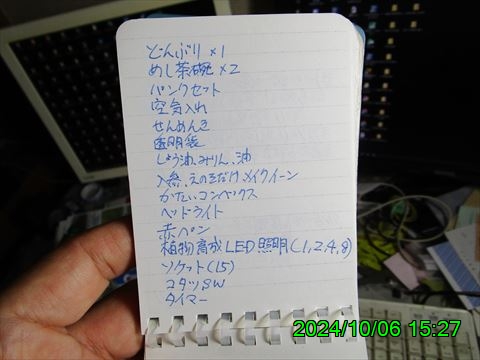 どんぶり×1
めし茶碗×2
パンクセット
空気入れ
せんめんき
透明袋
しょう油、みりん、油
人参、えのきだけ、メイクイーン
かたいコンベックス
ヘッドライト
赤ペン
植物育成LED照明(1,2,4,8)
ソケット(15)
コタツSW
タイマー
2024/10/06 15:27